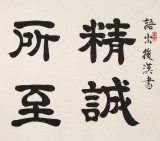 語出後漢書
精誠
所至